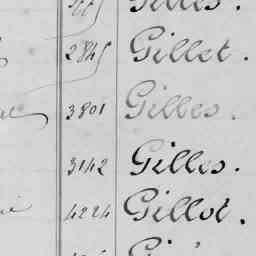 Gilles.
2845 Gillet.
3801 Gilles.
3142 Gilles.
4224 Gillot.